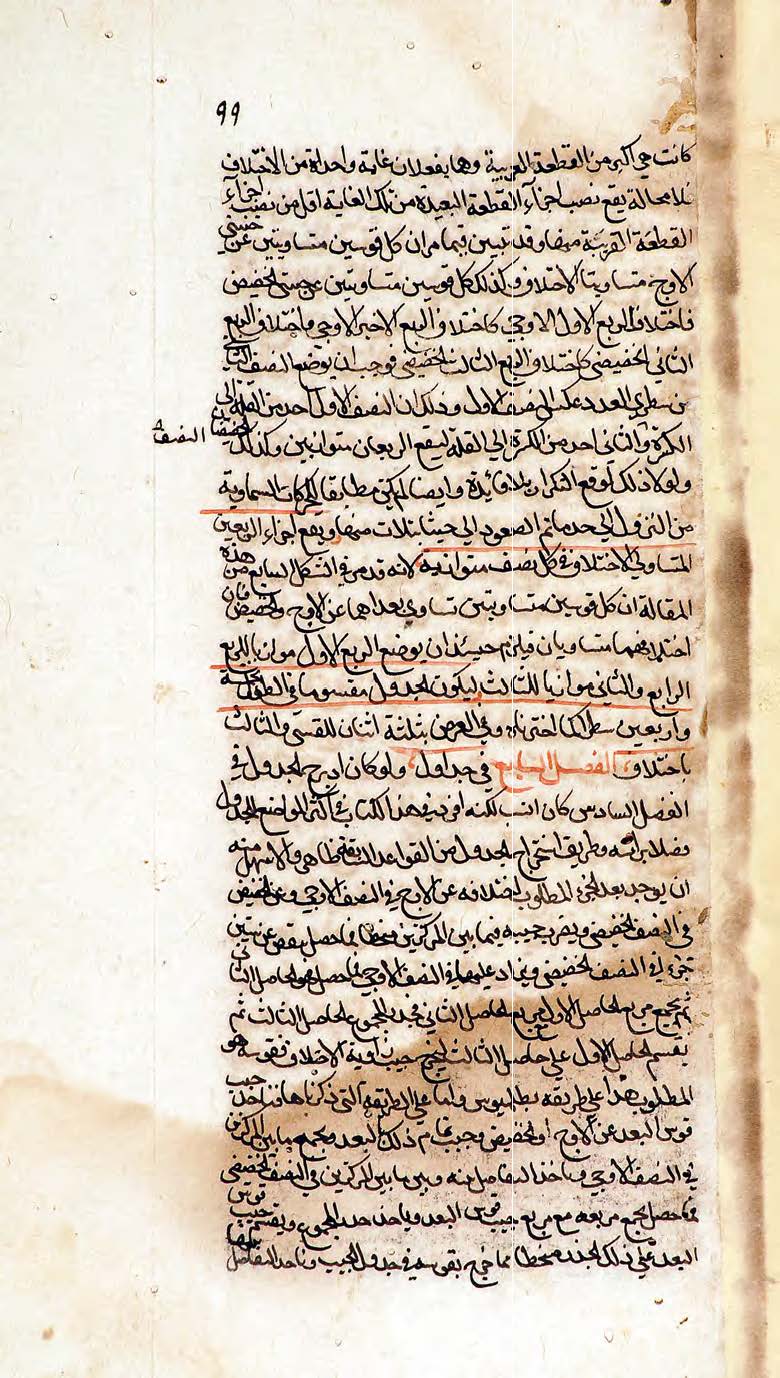 ٩٩
كانت هي اكبر من القطعة القريبة وهما يفعلان غاية واحدة من الاختلاف
فلا محالة يقع نصيب اجزآء القطعة البعيدة من تلك الغاية اقل من نصيب اجزآء
القطعة القريبة منها وقد تبين فيما مر ان كل قوسين متساويتين عن جنبتي
الاوج متساويتا الاختلاف وكذلك كل قوسين متساويتين عن جنبتي الحضيض
فاختلاف الربع الاول الاوجي كاختلاف الربع الاخير الاوجي واختلاف الربع
الثاني الحضيضي كاختلاف الربع الثالث الحضيضي فوجب ان يوضع النصف الثاني
من سطري العدد عكس النصف الاول وذلك ان النصف الاول اخذ من القلة الى
الكثرة والثاني اخذ من الكثرة الى القلة ليقع الربعان متوازيين وكذلك
النصف
ولولا ذلك لوقع التكرار بلا فائدة وايضا لم يكن مطابقا للحركات السماوية
من النزول الى حد ما ثم الصعود الى حيث ابتدأت منها ويقع اجزاء الربعين
المتساوي الاختلاف في كل نصف متوازية لانه قد مر في الشكل السابع من هذه
المقالة ان كل قوسين متساويتين تساوى بعداهما عن الاوج والحضيض فان
اختلافهما متساويان فيلزم حينئذ ان يوضع الربع الاول موازيا للربع
الرابع والثاني موازيا للثالث ليكون الجدول مقسوما في الطول بخمسة
واربعين سطرا كما اخترناه وفي العرض بثلثة اثنان للقسي والثالث
باختلاف الفصل السابع في جداول ولو كان ادرج الجدول في
الفصل السادس كان انسب لكنه افرد في هذا الكتاب في اكثر المواضع للجدول
فصلا براسه وطريق استخراج الجدول من القواعد السابقة ظاهر والاسهل منه
ان يوخذ بعد الجزء المطلوب اختلافه عن الاوج في النصف الاوجي وعن الحضيض
في النصف الحضيضي ويضرب جيبه فيما بين المركزين منحطا فما حصل ينقص عن ستين
جزء في النصف الحضيضي ويزاد عليها في النصف الاوجي فما حصل فهو الحاصل الثاني
ثم يجمع مربع الحاصل الاول مع مربع الحاصل الثاني فجذر المجموع الحاصل الثالث ثم
يقسم الحاصل الاول على حاصل الثالث ليخرج جيب زاوية الاختلاف فقوسه هو
المطلوب هذا على طريقة بطلميوس واما على الطريقة التي ذكرناها فناخذ جيب
قوس البعد عن الاوج او الحضيض وجيب تمام ذلك البعد ويجمع مع ما بين المركزين
في النصف الاوجي وناخذ التفاضل بينه وبين ما بين المركزين في النصف الحضيضي
فما حصل يجمع مربعه مع مربع جيب قوس البعد وياخذ جذر المجموع ويقسم جيب قوس
البعد على ذلك الجذر منحطا فما خرج يقوسه في جدول الجيب وناخذ التفاضل بينها